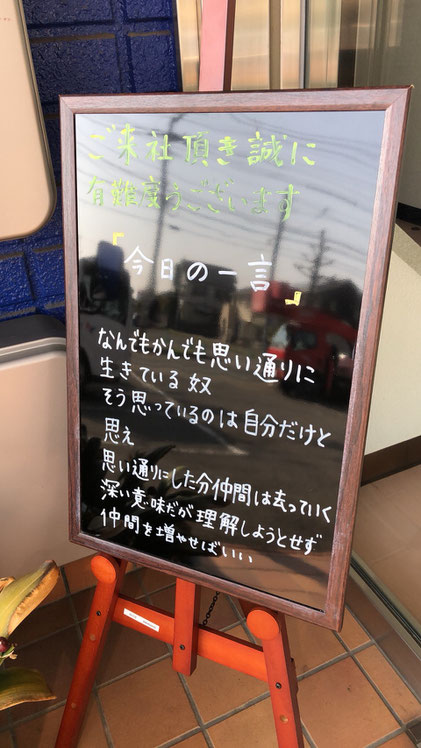 ご来社頂き誠に
有難度うございます
『今日の一言』
なんでもかんでも思い通りに
生きている奴
そう思っているのは自分だけと
思え
思い通りにした分仲間は去っていく
深い意味だが理解しようとせず
仲間を増やせばいい